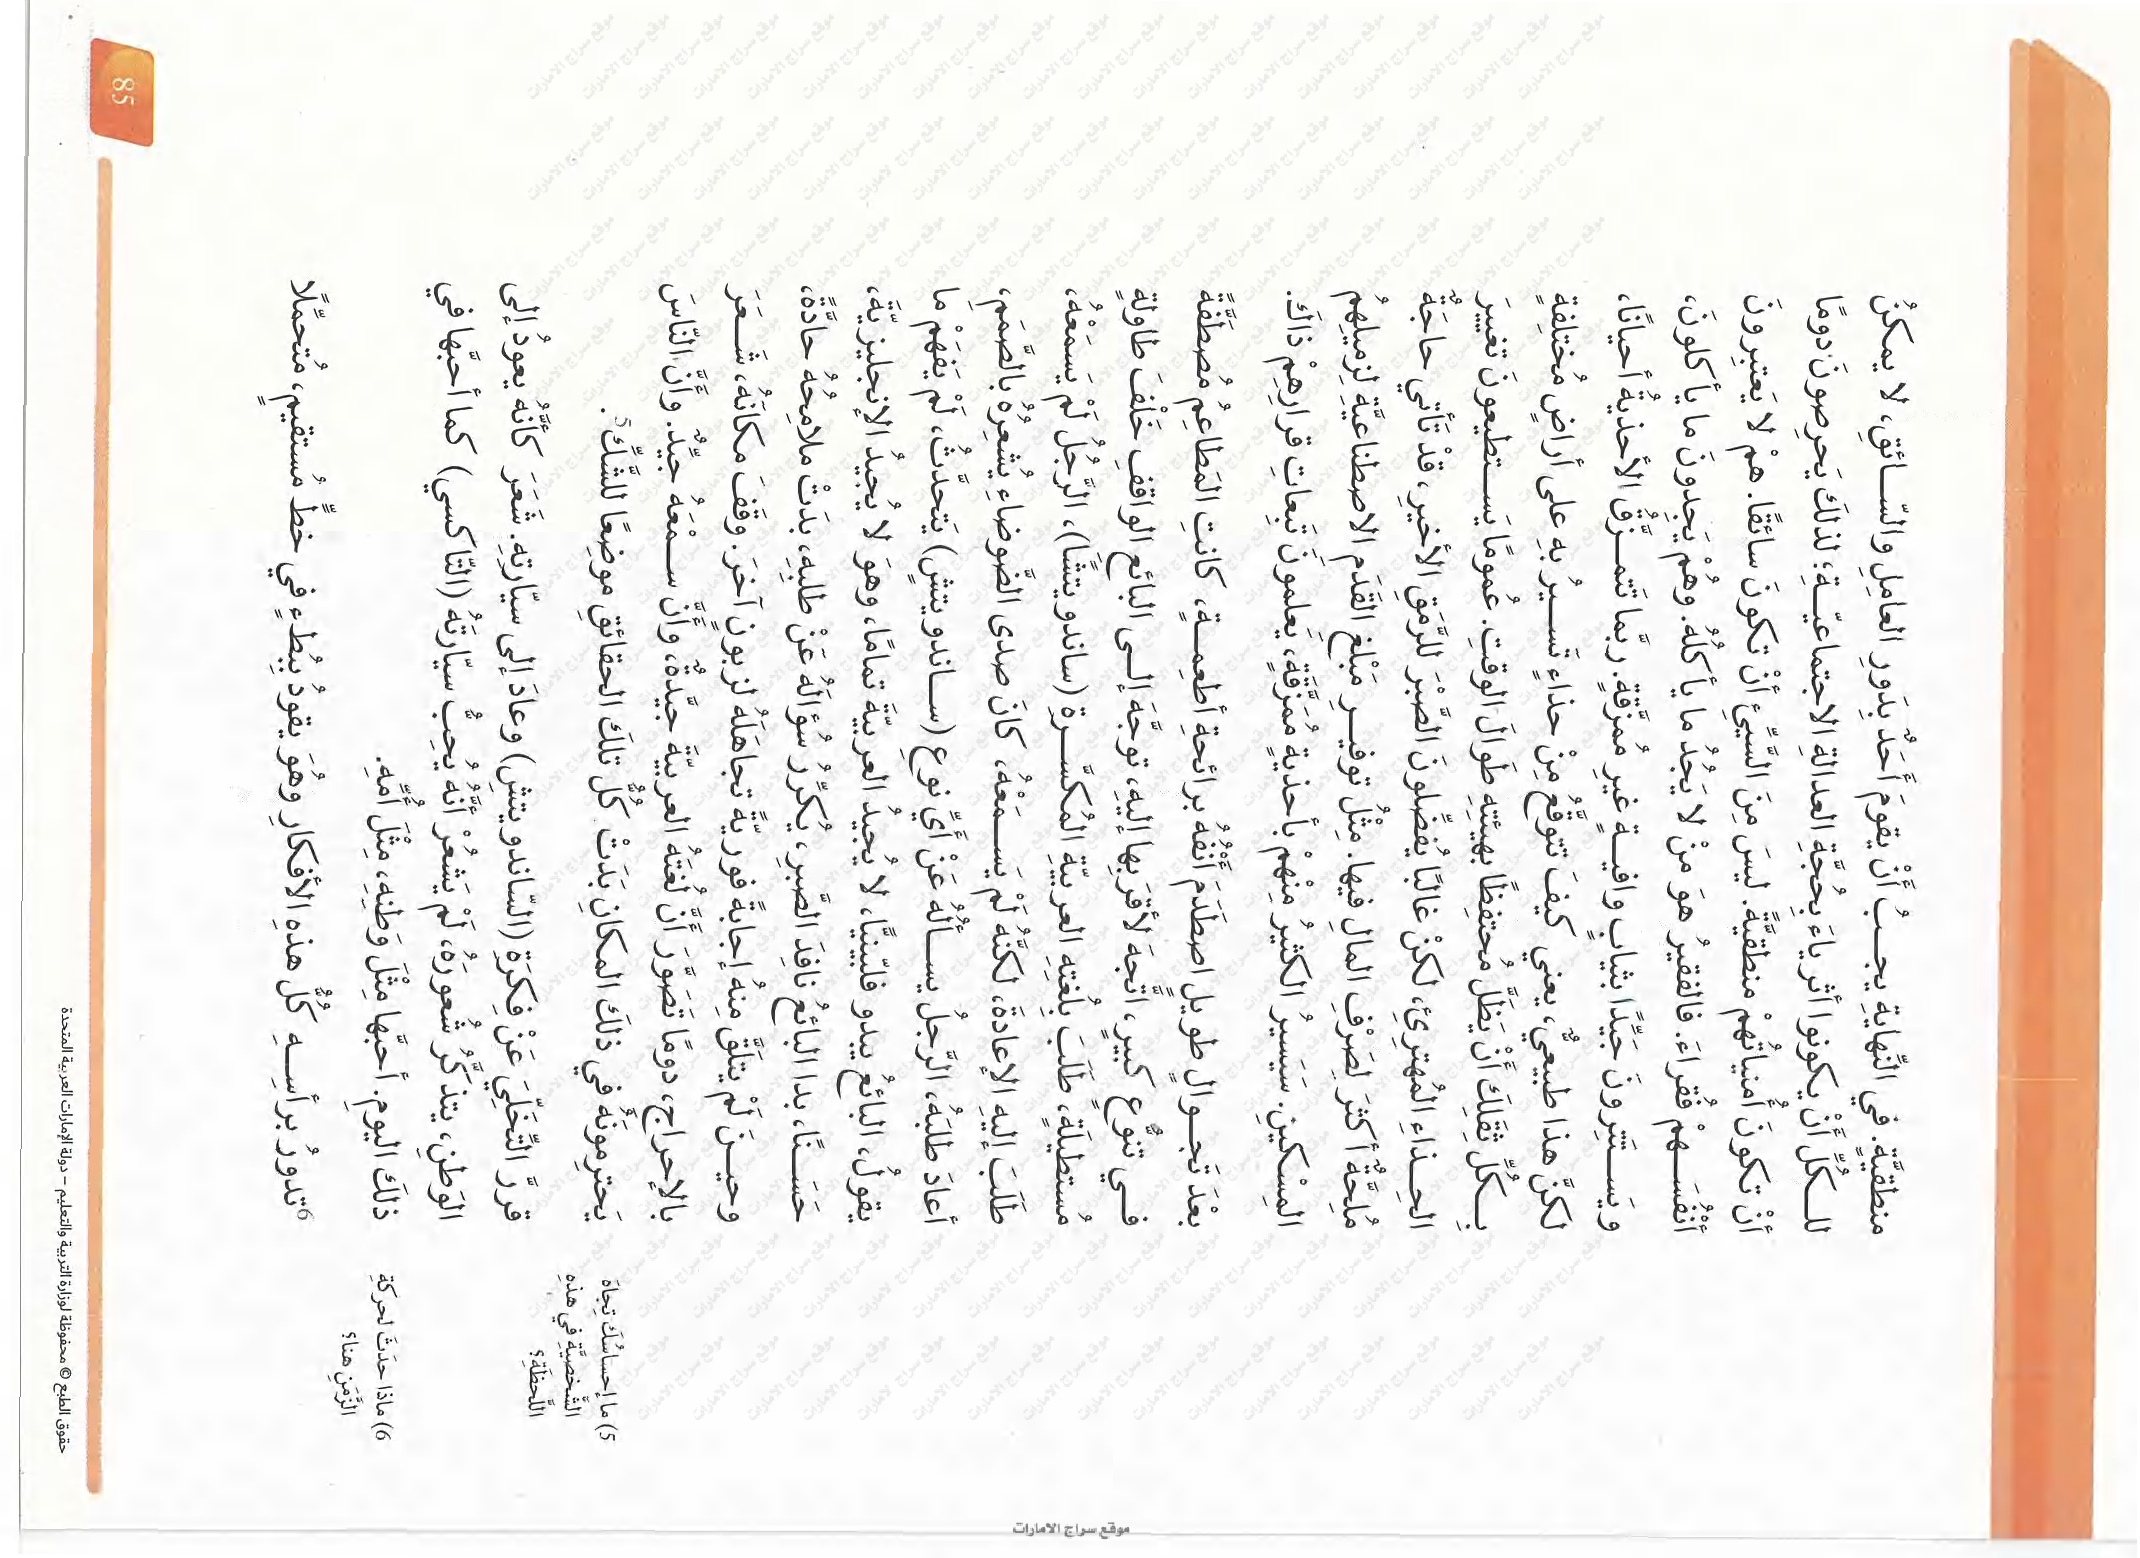 منطقيَّة. في النِّهايةِ يجـبُ أَنْ يقومَ أَحَدٌ بِدَورِ العاملِ والسّـائقِ، لا يمكنُ
للـكُلِّ أَنْ يكونوا أثرياءَ بِحُجَّةِ العدالةِ الاجتماعيّـةِ؛ لذلكَ يَحرِصونَ دومًا
أنْ تكونَ أُمنياتُهمْ منطقيَّةً. ليسَ مِنَ السَّيِّئِ أَنْ تكونَ سائقًا. همْ لا يَعتبِرونَ
أَنْفُسَـهمْ فُقراءَ. فالفقيرُ هوَ مَنْ لا يَجِدُ ما يأكلُهُ. وهُمْ يَجِدونَ ما يأكلونَ،
ويَسـتَتِرونَ جَيِّدًا بثيابٍ وافيـةٍ غيرِ مُمزَّقةٍ. ربَّما تَتمـزَّقُ الأحذيةُ أحيانًا،
لكنَّ هذا طبيعيٌّ، يعني كيفَ تتوقَّعُ مِنْ حذاءٍ تَسـيرُ بهِ على أراضٍ مُختلِفةٍ
بـكلِّ ثِقَلِكَ أَنْ يَظلَّ محتفِظًا بهيئتِهِ طَوالَ الوقتِ. عُمومًا يَسـتطيعونَ تغييرَ
الحِـذاءِ المُهترِئِ، لكنْ غالبًا يُفضِّلونَ الصَّبرَ للرَّمَقِ الأخيرِ، قدْ تَأتي حاجَةٌ
مُلِحَّةٌ أكثرَ لِصَرْفِ المالِ فيها. مِثْلُ توفيـرِ مَبْلغِ القَدَمِ الاصطناعيَّةِ لزميلِهِمُ
المِسْكينِ. سَيَسيرُ الكثيرُ مِنْهُمْ بأحذيةٍ ممزَّقةٍ، يَعلمونَ تَبِعاتِ قرارِهِمْ ذاكَ.
بعْدَ تَجـوالٍ طويلٍ اصطَدَمَ أَنْفُهُ برائحةِ أطعِمـةٍ، كانتِ المَطاعِمُ مُصطَفَّةً
فـي تنوُّعٍ كبيرٍ، اتَّجهَ لأقرَبِها إليهِ، توجَّهَ إلـى البائعِ الواقفِ خَلْفَ طاولةٍ
مُستطيلَةٍ، طَلَبَ بلُغتِهِ العربيّةِ المُكسَّـرةِ (ساندويتشًا)، الرَّجُلُ لَمْ يَسمعْهُ،
طَلَبَ إليهِ الإعادةَ، لكنَّهُ لَمْ يَسـمَعْهُ، كانَ صدى الضَّوضاءِ يُشعِرُهُ بالصَّمَمِ،
أعادَ طلبَهُ، الرَّجلُ يسـألُهُ عَنْ أَيِّ نوعِ (سـاندويتشٍ) يَتحدَّثُ، لَمْ يَفهَمْ ما
يقولُ، البائعُ يبدو فلبّينيًّا، لا يُجيدُ العربيّةَ تمامًا، وهوَ لا يُجيدُ الإنجليزيّةَ،
حَسَـنًا، بدا البائعُ نافِدَ الصَّبرِ، يُكرِّرُ سُؤالَهُ عَنْ طلبِهِ، بدَتْ ملامِحُهُ حادَّةً،
وحيـنَ لَمْ يتلَقَّ مِنهُ إجابةً فوريّةً تجاهَلَهُ لزبونٍ آخرَ. وقَفَ مكانَهُ، شَـعَرَ
بالإحراجِ، دومًا يَتصوَّرُ أَنَّ لُغتَهُ العربيّةَ جيِّدةٌ، وأَنَّ سـمْعَهُ جيِّدٌ. وأَنَّ النّاسَ
يَحترِمونَهُ في ذلكَ المكانِ بَدَتْ كلُّ تلكَ الحقائقِ موضِعًا للشَّكِّ5.
قرّرَ التَّخلِّيَ عَنْ فِكرَةِ (السّاندويتشِ) وعادَ إلى سيّارتِهِ. شَعَرَ كأنَّهُ يعودُ إلى
الوَطنِ، يتذكّرُ شُعورَهُ، لَمْ يَشعُرْ أَنَّهُ يُحِبُّ سيّارتَهُ (التّاكسي) كما أحبَّها في
ذلكَ اليومِ. أحبَّها مِثْلَ وَطنِهِ، مِثْلَ أُمِّهِ.
6تدورُ برأسِـهِ كُلُّ هذهِ الأفكارِ وهُوَ يقودُ ببُطءٍ في خطٍّ مُستقيمٍ، مُتحمِّلًا
5) ما إحساسُكَ تِجاهَ
الشَّخصيَّةِ في هذهِ
اللَّحظَةِ؟
6) ماذا حدَثَ لحركةِ
الزَّمَنِ هنا؟
85
حقوق الطبع © محفوظة لوزارة التربية والتعليم – دولة الإمارات العربية المتحدة
موقع سراج الامارات